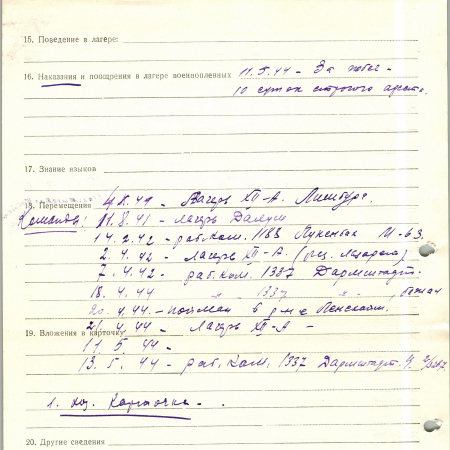 15. Поведение в лагере:
16. Наказания и поощрения в лагере военнопленных 11.5.44 – За побег –
10 суток строгого ареста.
17. Знание языков
18. Перемещения 41 – Лагерь XII-А. Лимбург.
Команды: 11.8.41 – лагерь
14.2.42 – раб. ком. 1183
2.4.42 – Лагерь XII-А (рез. Лазарета)
7.4.42 – раб. ком. 1337 Дармштадт.
18.4.44 " 1337 " , бежал
20.4.44. – пойман в р-не
19. Вложения в карточку 21.4.44 – Лагерь XII-А –
11.5.44 –
13.5.44 – раб. ком. 1337 Дармштадт.
1. Карточка –
20. Другие сведения